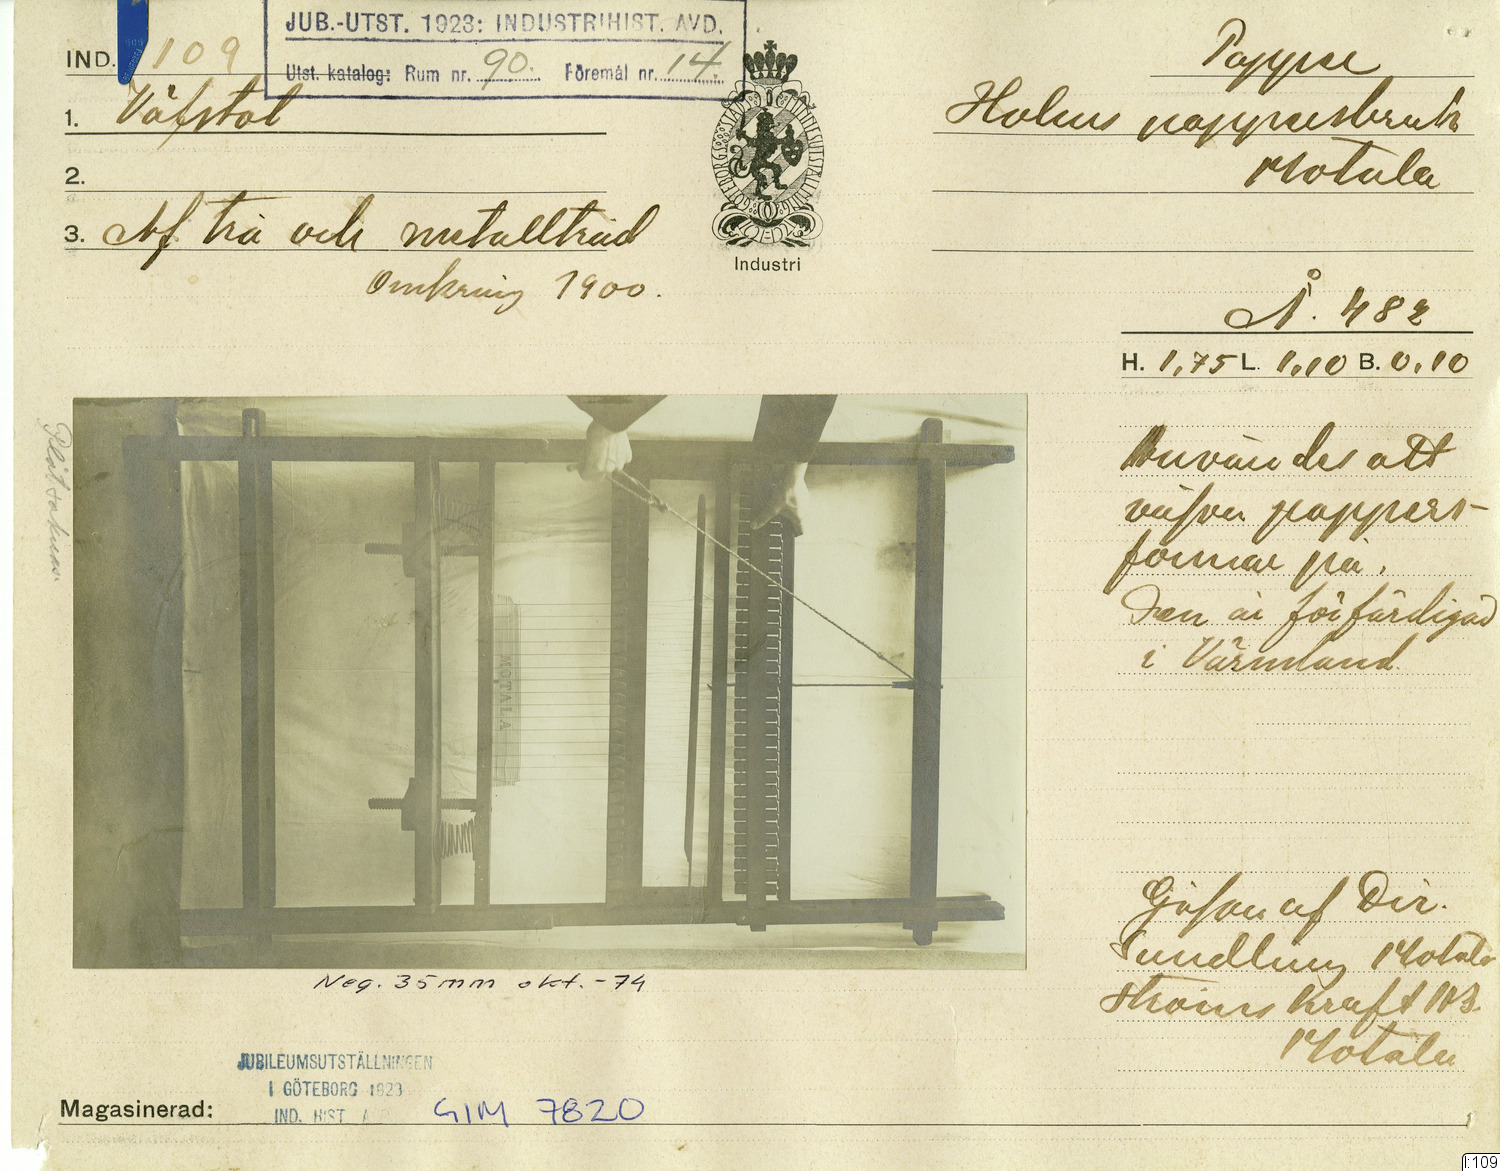 JUB.-UTST. 1923: INDUSTRIHIST. AVD.
Utst. katalog: Rum nr. 90. Föremål nr. 14
IND. 109
1. Väfstol
2.
3. Af trä och metalltråd
Omkring 1900.
GÖTEBORGS STADS JUBILEUMSUTSTÄLLNING
Industri
Papper
Holms pappersbruk
Motala
Å. 482
H. 1,75 L. 1,10 B. 0,10
Användes att
väfva pappers-
formar på.
Den är förfärdigad
i Värmland.
Gåfva af Dir.
Sundling Motala
Ströms Kraft AB.
Motala
Plåt saknas.
MOTALA
Neg. 35mm okt. -74
JUBILEUMSUTSTÄLLNINGEN
I GÖTEBORG 1923
IND. HIST A
Magasinerad: GIM 7820
I:109